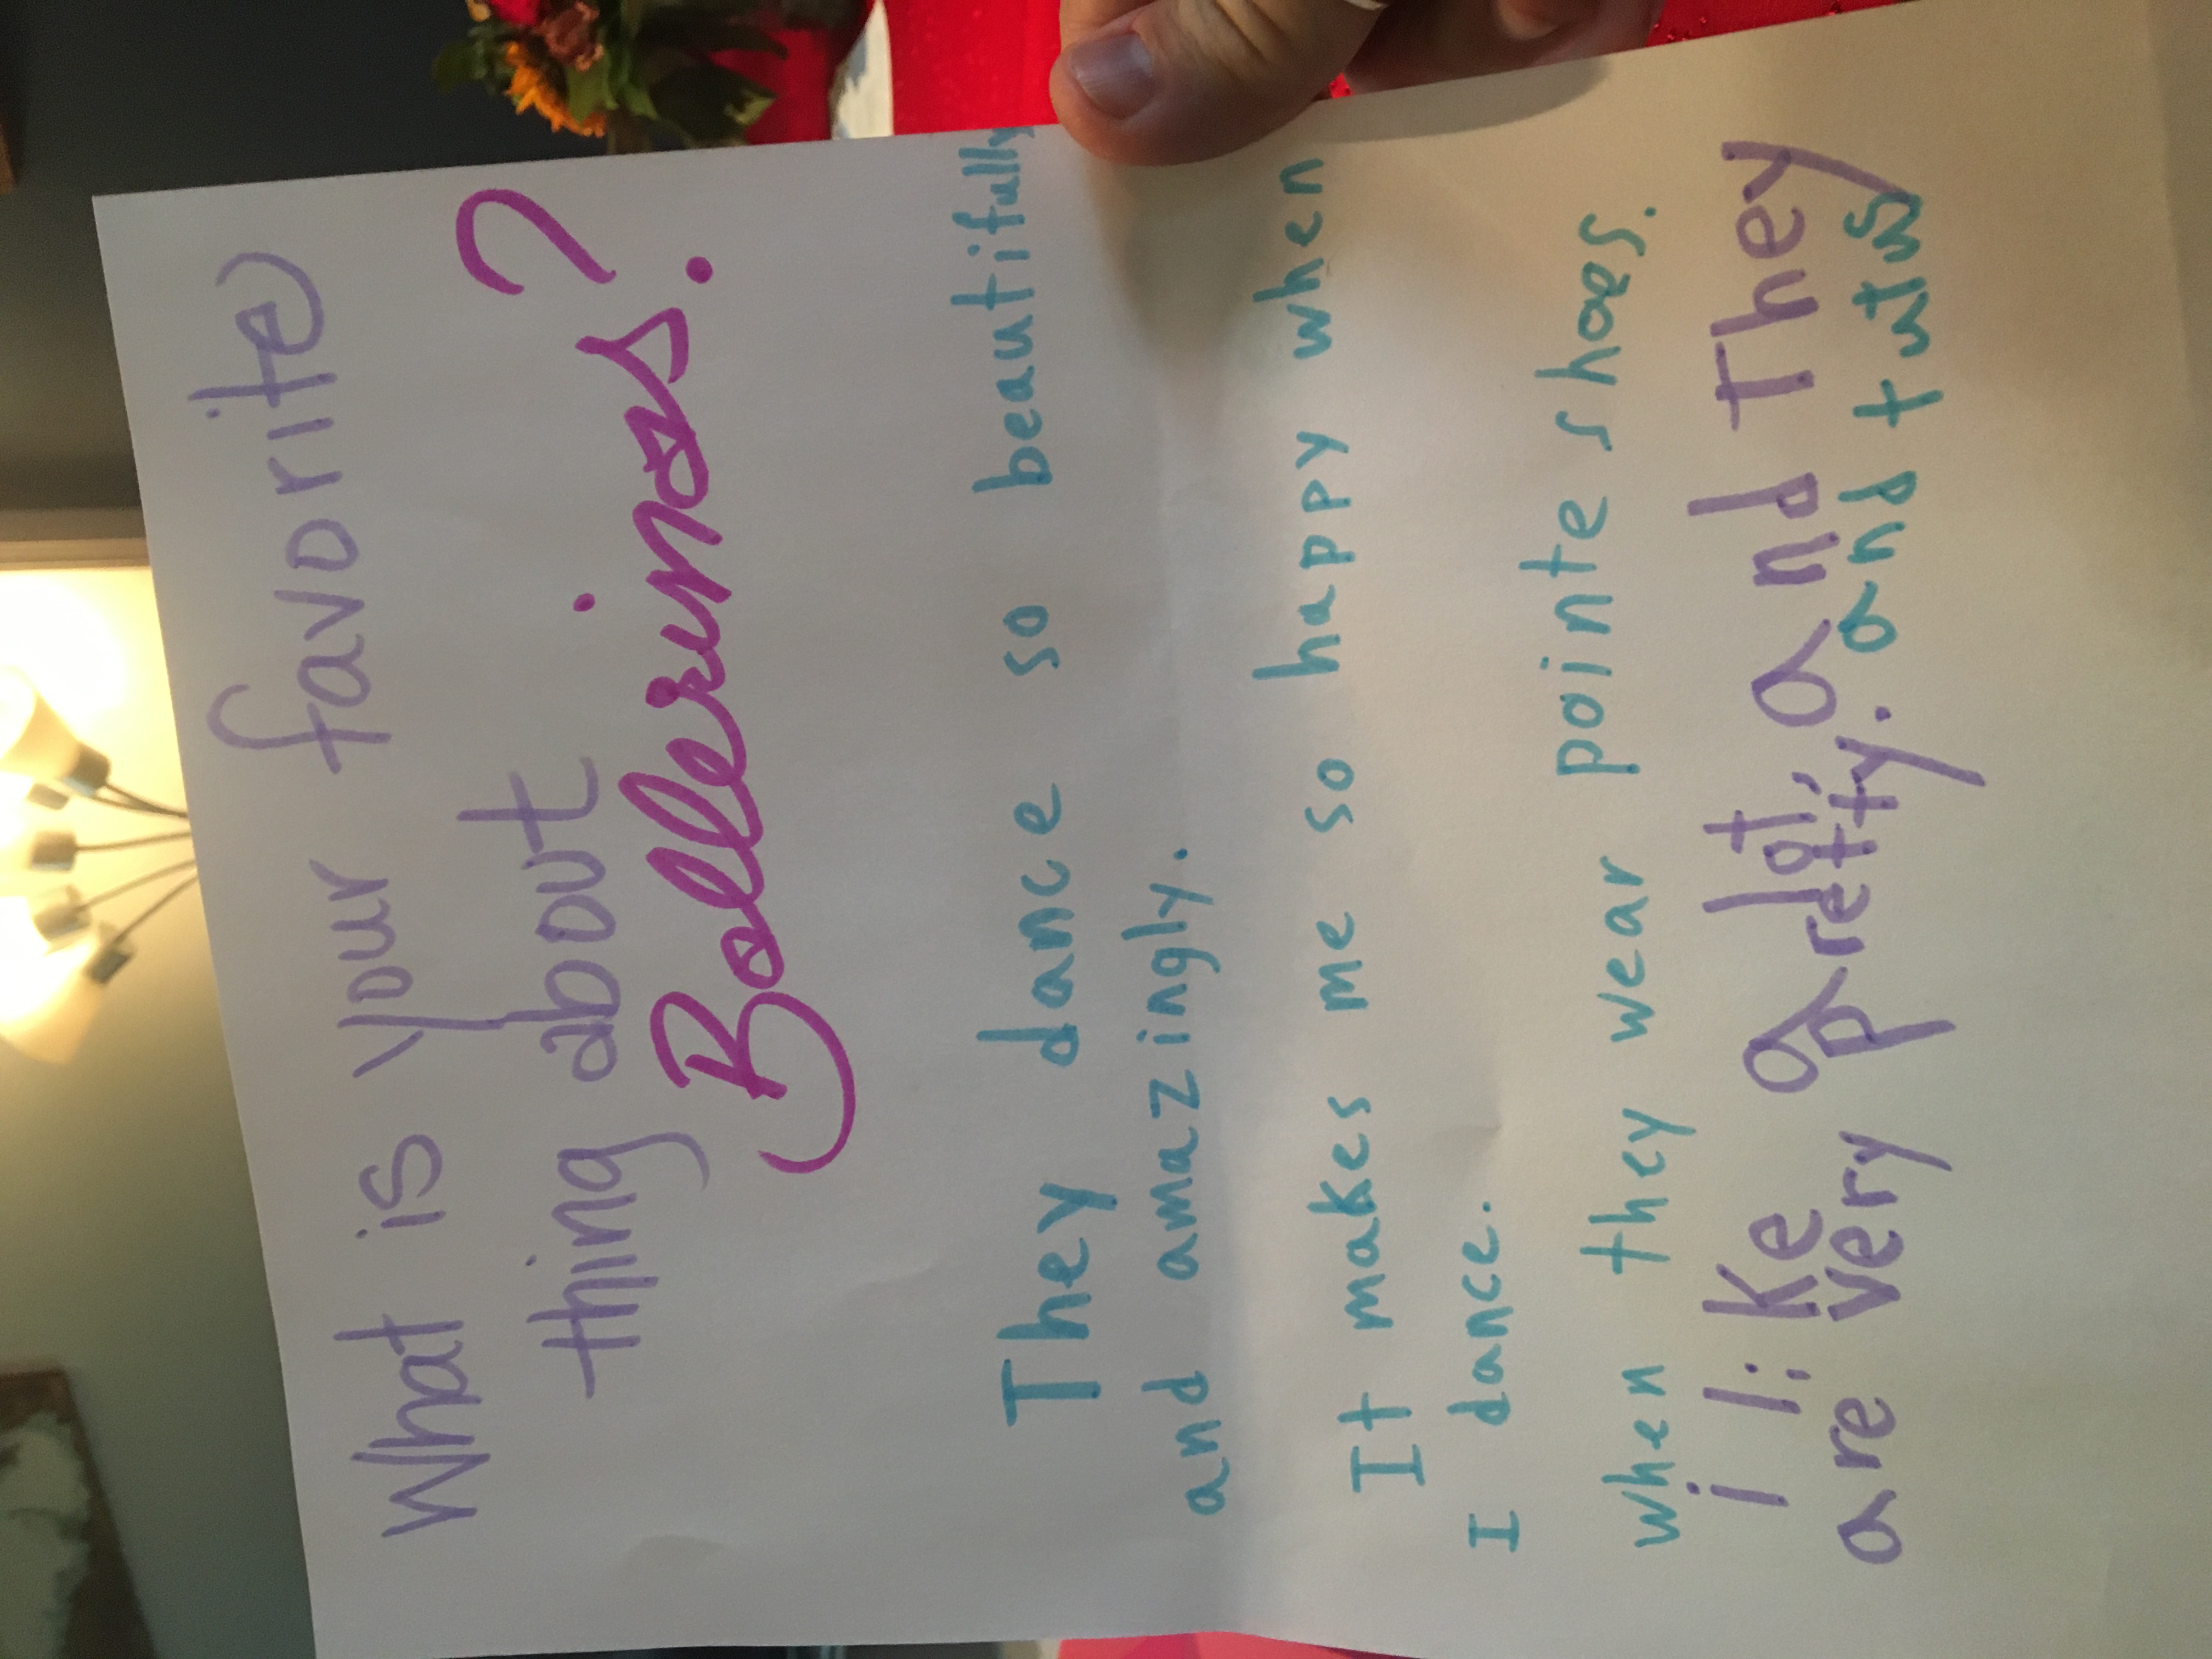 What is your favorite
thing about
Ballerinas?
They dance so beautifully
and amazingly.
It makes me so happy when
I dance.
when they wear pointe shoes.
i like a lot, and They
are very pretty. and tutus